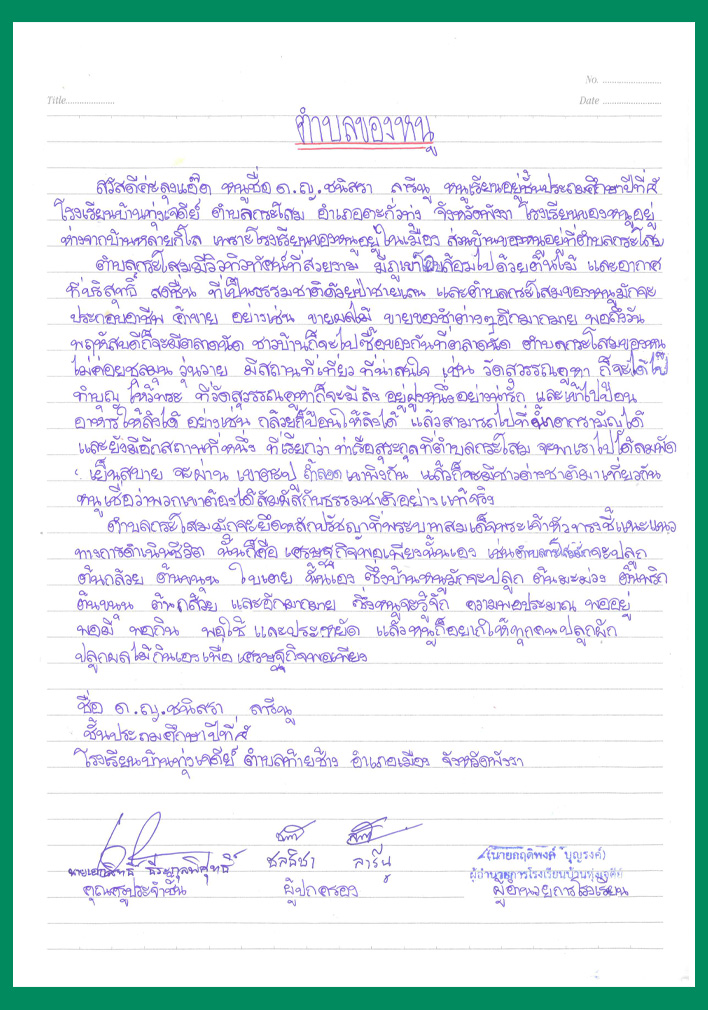 No. ........................
Title..................... Date ........................
ตำบลของหนู
สวัสดีค่ะลุงแอ๊ด หนูชื่อ ด.ญ.ชนิสรา ลารีนู หนูเรียนอยู่ชั้นประถมศึกษาปีที่
โรงเรียนบ้านทุ่งเจดีย์ ตำบลกระโสม อำเภอตะกั่วทุ่ง จังหวัดพังงา โรงเรียนของหนูอยู่
ห่างจากบ้านหลายกิโล เพราะโรงเรียนของหนูอยู่ในเมือง ส่วนบ้านของหนูอยู่ที่ตำบลกระโสม
ตำบลกระโสมมีวิวทิวทัศน์ที่สวยงาม มีภูเขาโอบล้อมไปด้วยต้นไม้ และอากาศ
ที่บริสุทธิ์ สดชื่น ที่เป็นธรรมชาติด้วยป่าชายเลน และตำบลกระโสมของหนูมักจะ
ประกอบอาชีพ ค้าขาย อย่างเช่น ขายผลไม้ ขายของชำต่างๆอีกมากมาย พอถึงวัน
พฤหัสบดีก็จะมีตลาดนัด ชาวบ้านก็จะไปซื้อของกันที่ตลาดนัด ตำบลกระโสมของหนู
ไม่ค่อยชุลมุน วุ่นวาย มีสถานที่เที่ยว ที่น่าสนใจ เช่น วัดสุวรรณคูหา ก็จะได้ไป
ทำบุญ ไหว้พระ ที่วัดสุวรรณคูหาก็จะมีลิง อยู่ฝูงหนึ่งอย่างน่ารัก และเข้าไปป้อน
อาหารให้ลิงได้ อย่างเช่น กล้วยก็ป้อนให้ลิงได้ แล้วสามารถไปที่น้ำตกรามัญได้
และยังมีอีกสถานที่หนึ่ง ที่เรียกว่า ท่าเรือสุระกุลที่ตำบลกระโสม จะพาเราไปได้สัมผัส
เย็นสบาย จะผ่าน เขาตะปู ถ้ำลอด เขาพิงกัน แล้วก็จะมีชาวต่างชาติมาเที่ยวกัน
หนูเชื่อว่าพวกเขาต้องได้สัมผัสกับธรรมชาติอย่างแท้จริง
ตำบลกระโสมมักจะยึดหลักปรัชญาที่พระบาทสมเด็จพระเจ้าหัวทรงชี้แนะแนว
ทางการดำเนินชีวิต นั้นก็คือ เศรษฐกิจพอเพียงนั้นเอง เช่นตำบลกระโสมมักจะปลูก
ต้นกล้วย ต้นขนุน ใบเตย นั้นเอง ซึ่งบ้านหนูมักจะปลูก ต้นมะม่วง ต้นพริก
ต้นขนุน ต้นกล้วย และอีกมากมาย ซึ่งหนูจะรู้จัก ความพอประมาณ พออยู่
พอมี พอกิน พอใช้ และประหยัด แล้วหนูก็อยากให้ทุกคนปลูกผัก
ปลูกผลไม้กินเองเพื่อ เศรษฐกิจพอเพียง
ชื่อ ด.ญ.ชนิสรา ลารีนู
ชั้นประถมศึกษาปีที่
โรงเรียนบ้านทุ่งเจดีย์ ตำบลท้ายช้าง อำเภอเมือง จังหวัดพังงา
ชลธิชา ลารีนู (นายกฤติพงศ์ บุญรงค์)
ผู้อำนวยการโรงเรียนบ้านทุ่งเจดีย์
คุณครูประจำชั้น ผู้ปกครอง ผู้อำนวยการโรงเรียน